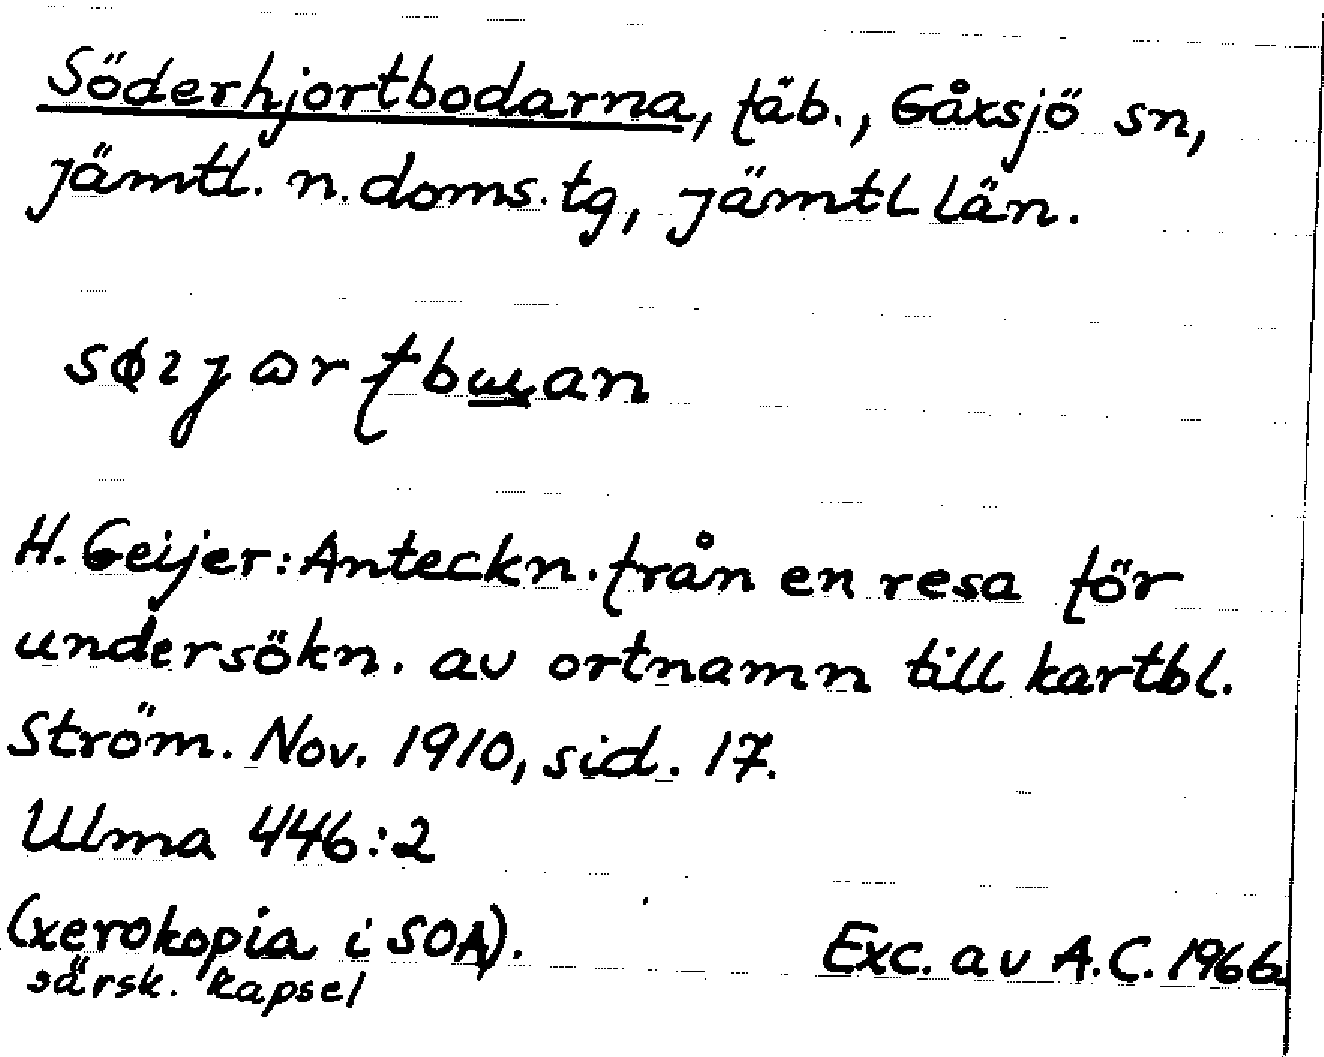 Söderhjortbodarna, fäb., Gåxsjö sn,
Jämtl. n. doms. tg, Jämtl län.
H. Geijer: Anteckn. från en resa för
undersökn. av ortnamn till kartbl.
Ström. Nov. 1910, sid. 17.
Ulma 446:2
(xerokopia i SOA). Exc. av A.C. 1966
särsk. kapsel